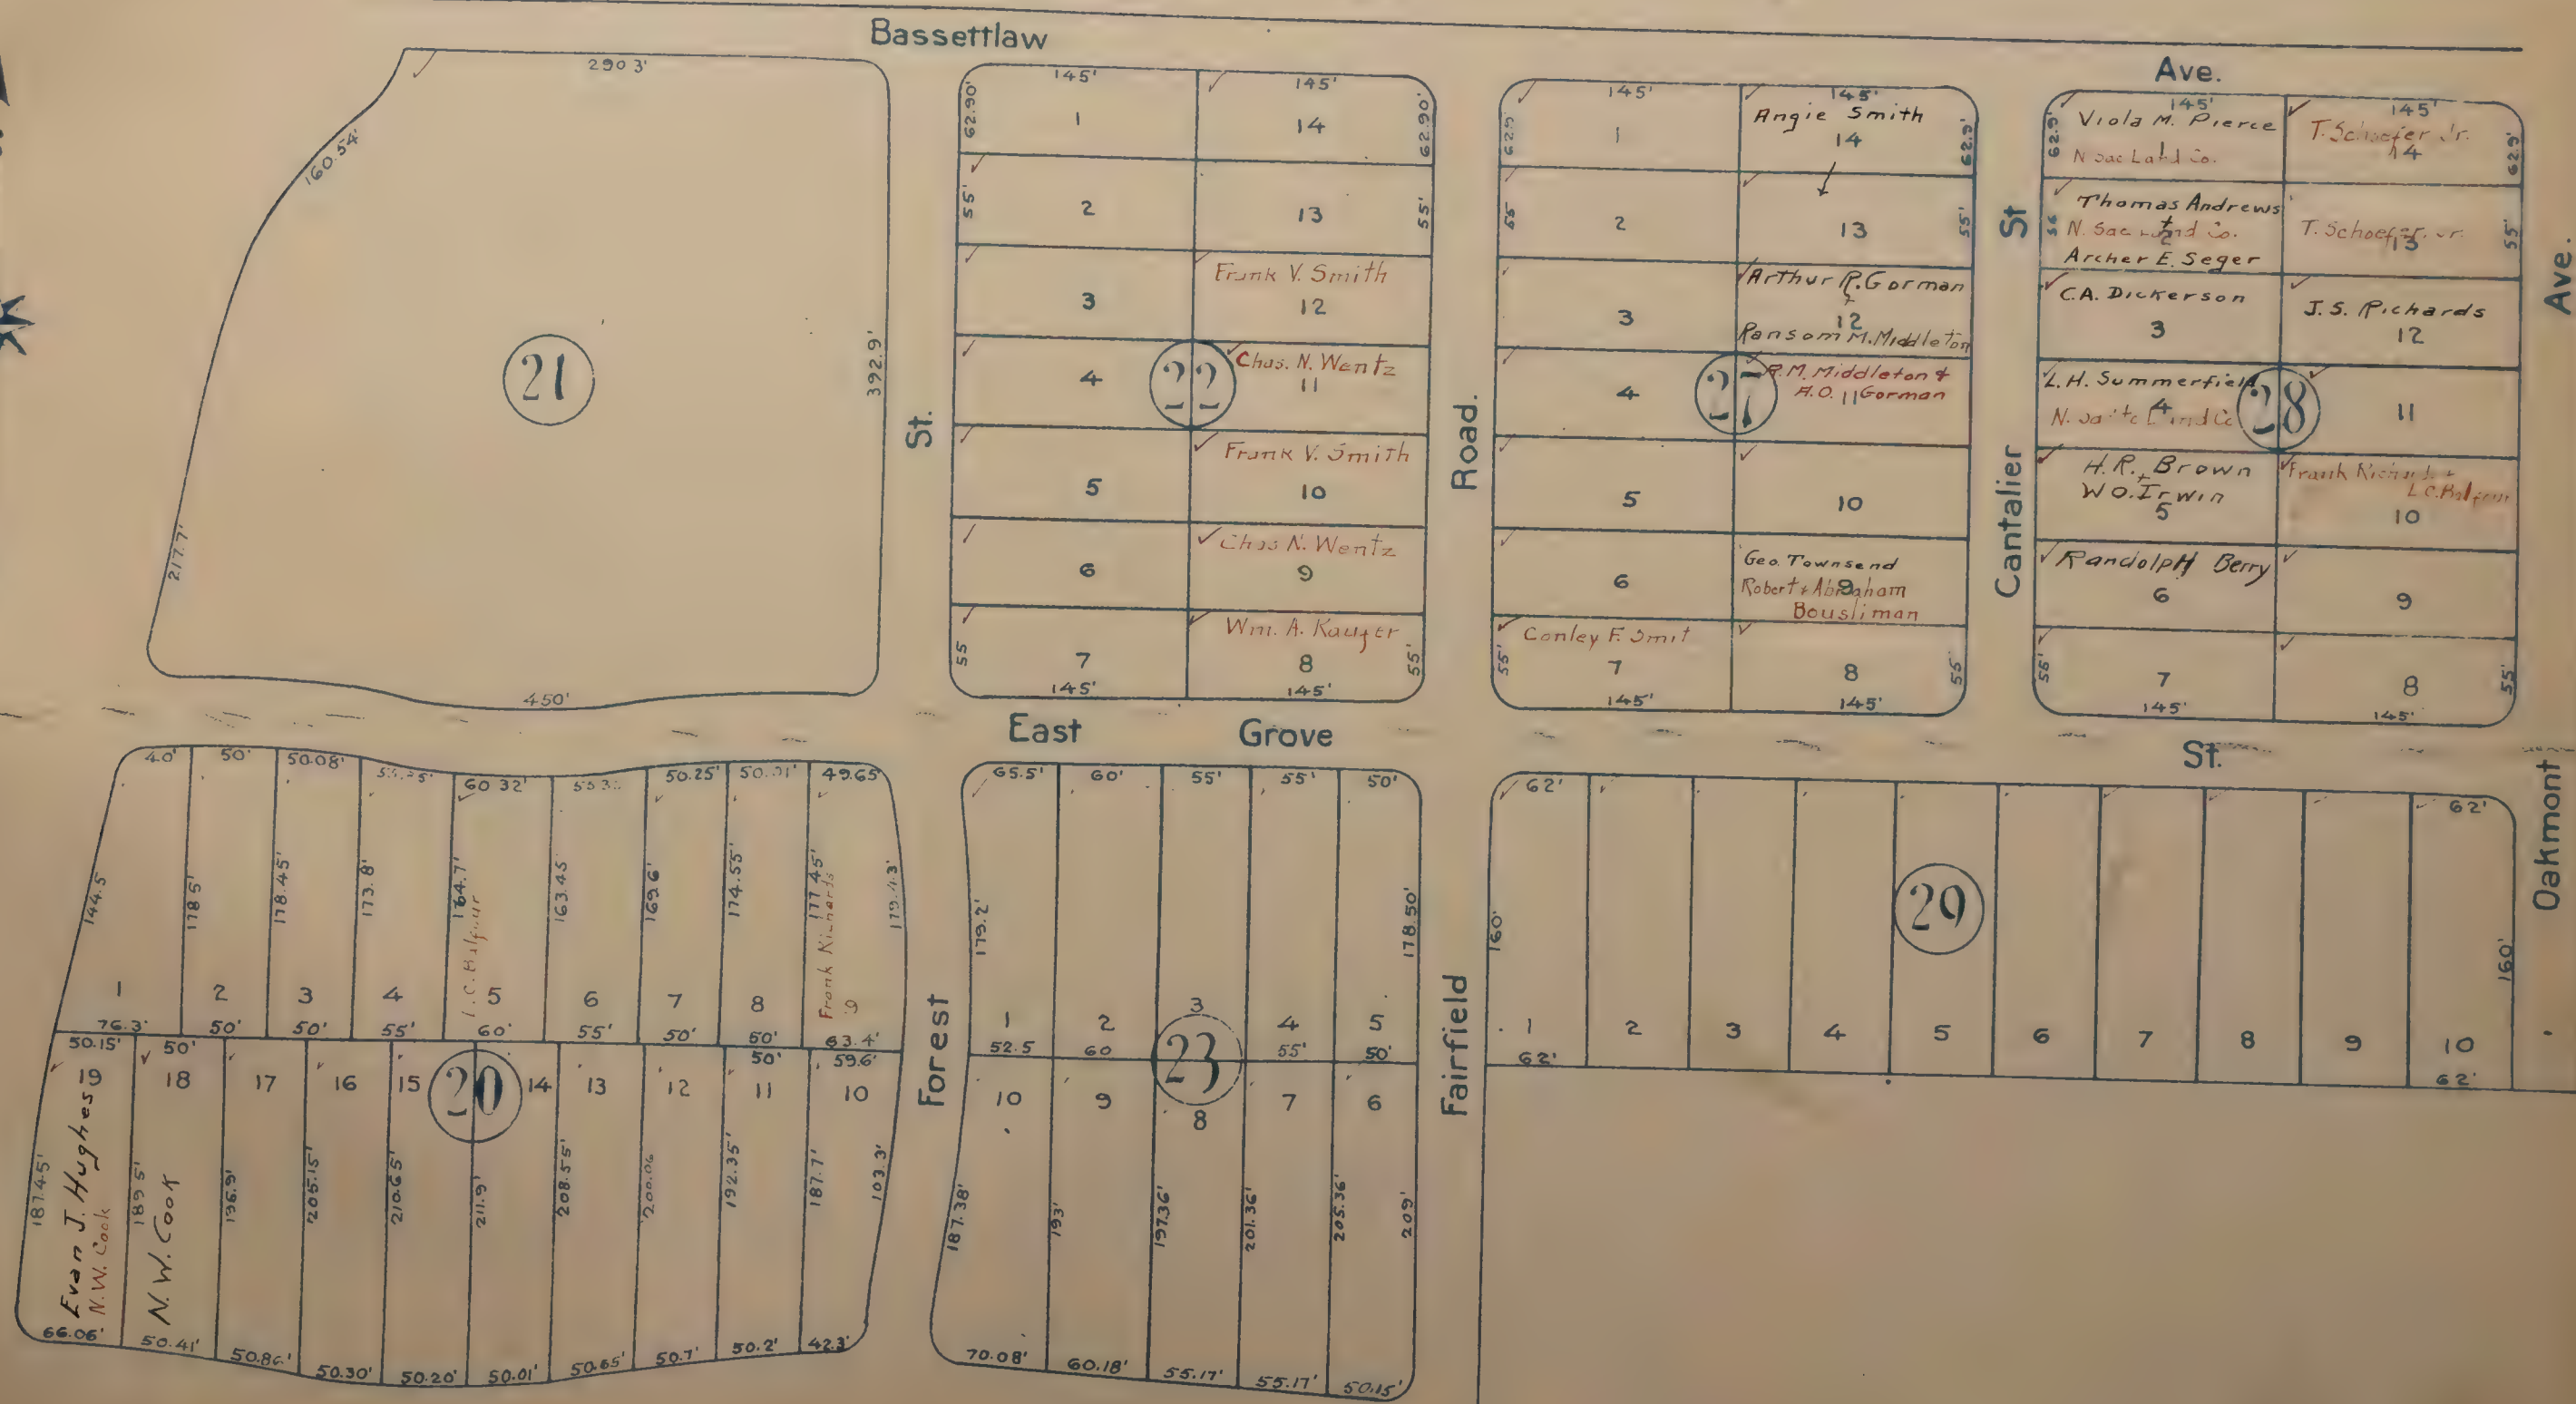 Bassettlaw
Ave.
290 3'
160.54'
217.7'
392.9'
450'
21
St.
145'
145'
62.90'
62.90'
1
14
55'
55'
2
13
3
Frank V. Smith
12
4
22
Chas. N. Wentz
11
5
Frank V. Smith
10
6
Chas N. Wentz
9
55
7
145'
Wm. A. Kaufer
8
145'
55'
Road.
145'
145'
62.9'
62.9'
1
Angie Smith
14
55
55'
2
13
3
Arthur R. Gorman
+
12
Ransom M. Middleton
4
27
R.M. Middleton &
A.O. 11 Gorman
5
10
6
Geo. Townsend
Robert & Abraham
9
Bousliman
Conley F. Smit
55'
7
145'
8
145'
55'
Cantalier
St
145'
145'
62.9'
62.9'
Viola M. Pierce
1
N Sac Land Co.
T. Schaefer Jr.
14
Thomas Andrews
+
N. Sac Land Co.
2
Archer E. Seger
55'
T. Schaefer Jr.
13
55'
C.A. Dickerson
3
J.S. Richards
12
L.H. Summerfield
4
28
11
H.R. Brown
+
W O. Irwin
5
Frank Richards +
L.C. Balfour
10
Randolph Berry
6
9
55'
7
145'
8
145'
55'
Ave.
Oakmont
East
Grove
St.
40'
50'
50.08'
60 32'
50.25'
49.65'
144.5'
178 5'
178.45'
173.8'
164.7'
L.C. Balfour
163.45'
169.6'
174.55'
177.45'
Frank Richards
179.43'
1
2
3
4
5
6
7
8
9
76.3'
50'
50'
55'
60'
55'
50'
50'
63.4'
50.15'
50'
50'
59.6'
19
18
17
16
15
20
14
13
12
11
10
187.45'
Evan J. Hughes
N.W. Cook
189 5'
N.W. Cook
196.9'
205.15'
210.65'
211.9'
208.55'
200.06
192.35'
187.7'
103.3'
66.06'
50.41'
50.86'
50.30'
50.20'
50.01'
50.65'
50.7'
50.2'
42.3'
Forest
65.5'
60'
55'
55'
50'
179.2'
178.50'
1
2
3
4
5
52.5
60
23
55'
50'
10
9
8
7
6
187.38'
193'
197.36'
201.36'
205.36'
209'
70.08'
60.18'
55.17'
55.17'
50.15'
Fairfield
62'
62'
160'
160'
29
1
2
3
4
5
6
7
8
9
10
62'
62'